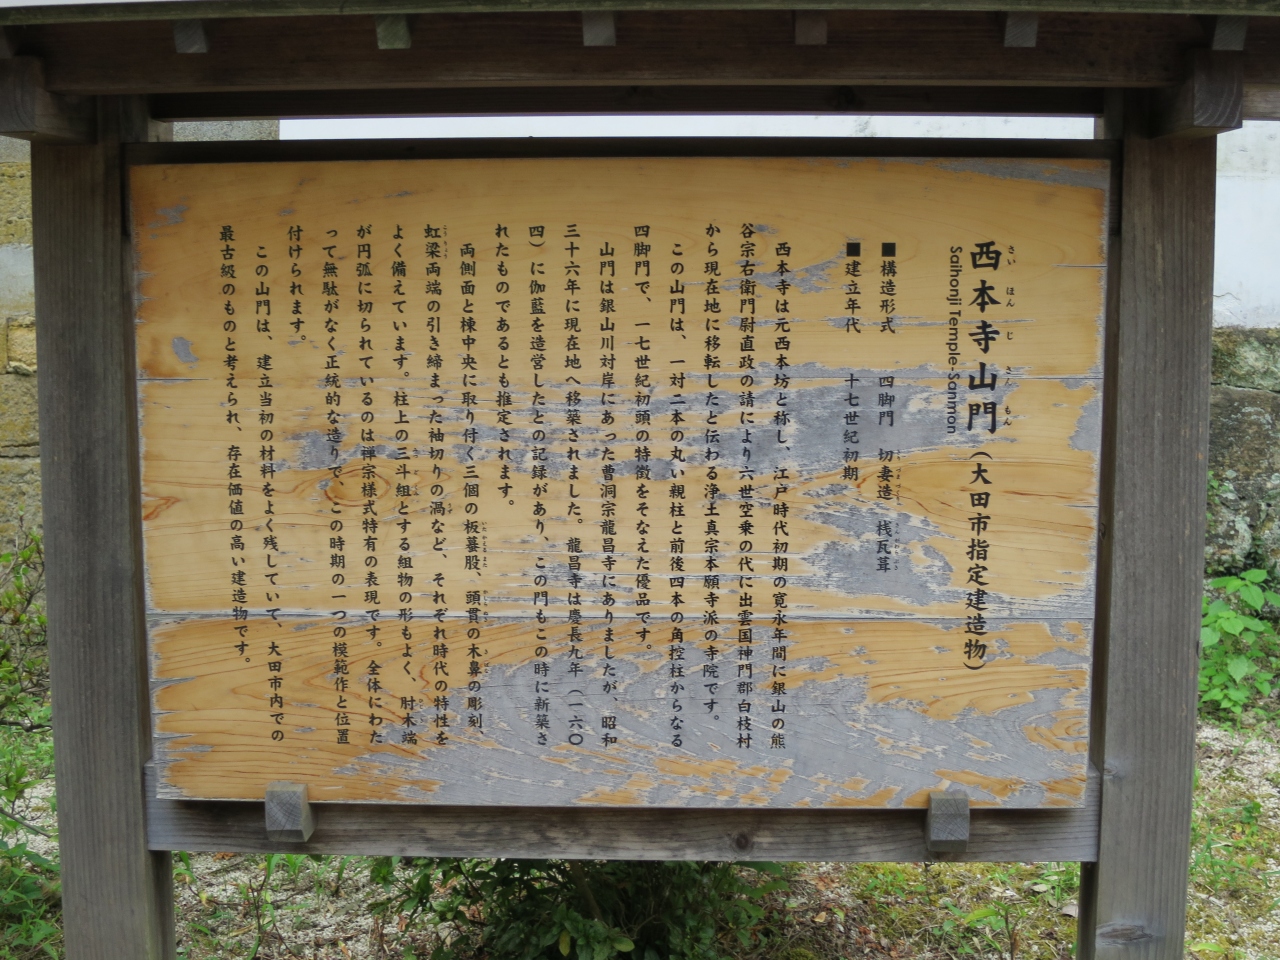 西本寺山門(大田市指定建造物)
さい ほん じ さん もん
Saihonji Temple-Sanmon
■構造形式 四脚門 切妻造 桟瓦葺
■建立年代 十七世紀初期
西本寺は元西本坊と称し、江戸時代初期の寛永年間に銀山の熊
谷宗右衛門尉直政の請により六世空乗の代に出雲国神門郡白枝村
から現在地に移転したと伝わる浄土真宗本願寺派の寺院です。
この山門は、一対二本の丸い親柱と前後四本の角控柱からなる
四脚門で、一七世紀初頭の特徴をそなえた優品です。
山門は銀山川対岸にあった曹洞宗龍昌寺にありましたが、昭和
三十六年に現在地へ移築されました。龍昌寺は慶長九年(一六〇
四)に伽藍を造営したとの記録があり、この門もこの時に新築さ
れたものであるとも推定されます。
両側面と棟中央に取り付く三個の板蟇股、頭貫の木鼻の彫刻、
虹梁両端の引き締まった袖切りの渦など、それぞれ時代の特性を
よく備えています。柱上の三斗組とする組物の形もよく、肘木端
が円弧に切られているのは禅宗様式特有の表現です。全体にわた
って無駄がなく正統的な造りで、この時期の一つの模範作と位置
付けられます。
この山門は、建立当初の材料をよく残していて、大田市内での
最古級のものと考えられ、存在価値の高い建造物です。